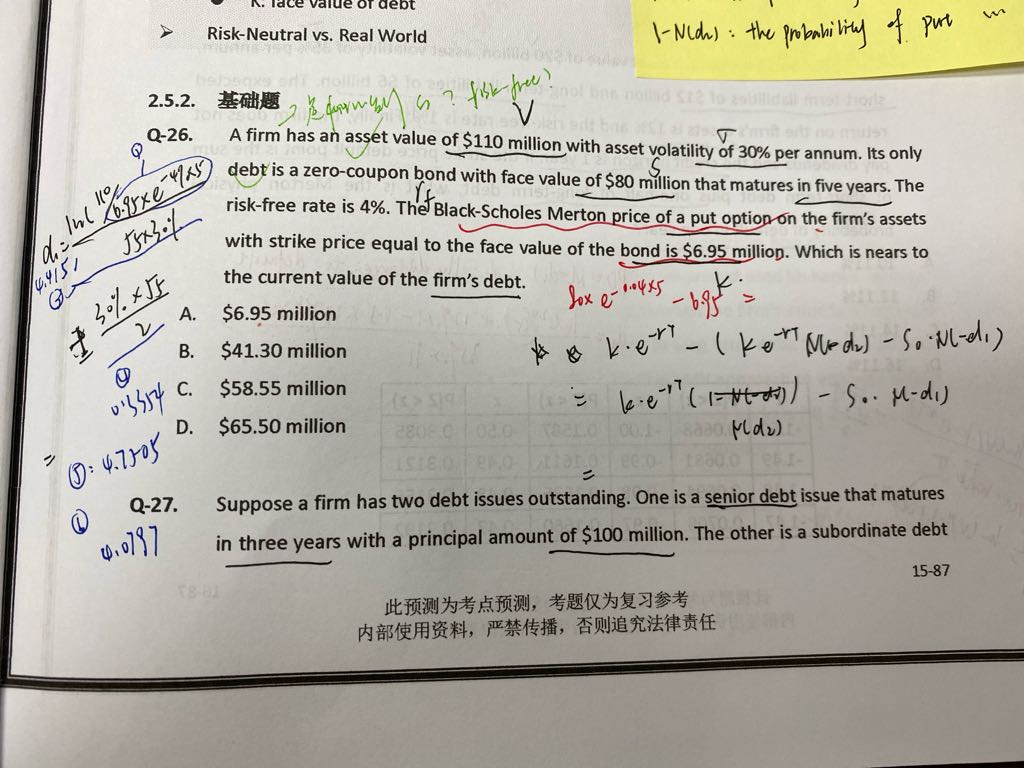 K: face value of debt
1-N(d2): the probability of pure
➤ Risk-Neutral vs. Real World
2.5.2. 基础题
risk-free)
V
Q-26. A firm has an asset value of $110 million with asset volatility of 30% per annum. Its only
debt is a zero-coupon bond with face value of $80 million that matures in five years. The
risk-free rate is 4%. The Black-Scholes Merton price of a put option on the firm's assets
with strike price equal to the face value of the bond is $6.95 million. Which is nears to
the current value of the firm's debt.
80x e^-0.04x5 - 6.95 =
K.
A. $6.95 million
B. $41.30 million
C. $58.55 million
D. $65.50 million
k·e^-rT - (ke^-rT N(-d2) - S0·N(-d1)
= k·e^-rT (1-N(-d2)) - S0· N(-d1)
N(d2)
=
4.4151
③
30% × √5
2
④
0.3354
= ⑤: 4.7505
⑥
4.0797
Q-27. Suppose a firm has two debt issues outstanding. One is a senior debt issue that matures
in three years with a principal amount of $100 million. The other is a subordinate debt
15-87
此预测为考点预测，考题仅为复习参考
内部使用资料，严禁传播，否则追究法律责任